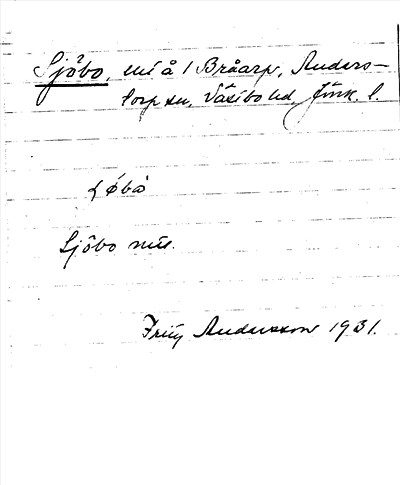 Sjöbo, till å 1 Bråarp, Anders-
torp sn, Västbo hd, Jönk. l.
Sjöbo
Fritz Andersson 1931.